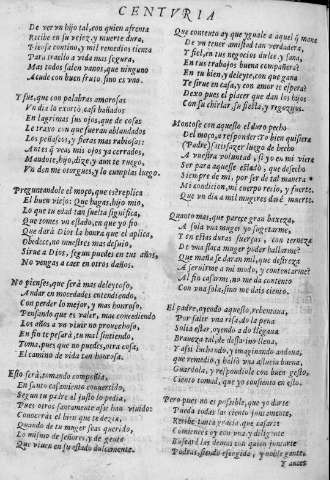 CENTVRIA
De ver vn hijo tal, con quien afrenta
Recibe en su vejez, y muerte dura,
Piensa contino, y mil remedios tienta
Para traello a vida mas segura,
Mas todos salen vanos, que ninguno
Acude con buen fruto, sino es vno.
Y fue, que con palabras amorosas
Vn dia le exortò, casi bañados
En lagrimas sus ojos, que de cosas
Le traxo con que fueran ablandados
Los peñascos, y fieras mas rabiosas:
Antes que veas mis ojos ya cerrados,
Mi hijo, dize, y aun te ruego,
Vn don me otorgues, y lo cumplas luego.
Preguntandole el moço, que es? replica
El buen viejo: Que hagas, hijo mio,
Lo que tu edad tan suelta significa,
Que tomes ya estado, en que yo fio
Que darà Dios la honra que el aplica,
Obedece, no muestres mas desuio,
Sirue a Dios, segun puedes en tus años,
No vengas a caer en otros daños.
No pienses, que serà mas deleytoso,
Andar en mocedades entendiendo,
Con perder lo mejor, y mas honroso,
Pensando que es valer, mas concediendo
Los años a vn viuir no prouechoso,
En fin te pesarà, tu mal sintiendo,
Toma, pues que no puedes, otra cosa,
El camino de vida tan honrosa.
Esto serà, tomando compañia,
En santo casamiento conuertido,
Segun tu padre al justo lo pedia,
Pues otros santamente assi han viuido:
Conoceràs el bien que te dezia,
Quando de tu muger seas querido,
Lo mismo de señores, y de gente
Que viuen en su estado dulcemente.
Que contento ay que yguale a aquel que mora
De vn tener amistad tan verdadera,
Y fiel, en tus negocios dulce, y sana,
En tus trabajos buena compañera?
En tu bien, y deleyte, con que gana
Te sirue en casa, y con amor te espera?
Dexo pues el placer que dan los hijos
Con su chirlar, su fiesta, y regozijos.
Montose con aquesto el duro pecho
Del moço, a responder: Yo bien quisiera
(Padre) satisfazer luego de hecho
A vuestra voluntad, si yo en mi viera
Ser para aquesse estado, que derecho
Siempre de mi, por ser de tal manera
Mi condicion, mi cuerpo recio, y fuerte,
Que vn dia a mil mugeres darè muerte.
Quanto mas, que parece gran baxeza,
A sola vna muger yo sogetarme,
Y en estas duras fuerças, con terneza
De vna flaca muger poder hallarme:
Que maña se daran mil, que destreza
A seruirme a mi modo, y contentarme?
Al fin casarme, no me da contento
Con vna sola, sino me dais ciento.
El padre, oyendo aquesto, rebentaua,
Por soltar vna risa, do la pena
Solia estar, oyendo a do llegaua
Braueza tal, de desatino llena,
Y assi burlando, y imaginando andaua,
que remedio, y hallò vna astucia buena.
Guardola, y respondiole con buen gesto,
Ciento tomal, que yo consiento en esto.
Pero pues no es possible, que yo darte
Pueda todas las ciento juntamente,
Recibe tanta gracia, que casarte
Comiences oy con vna, y diligente
Buscarè las demas con quien juntarte
Podras, siendo escogida, y noble gente,
Y antes